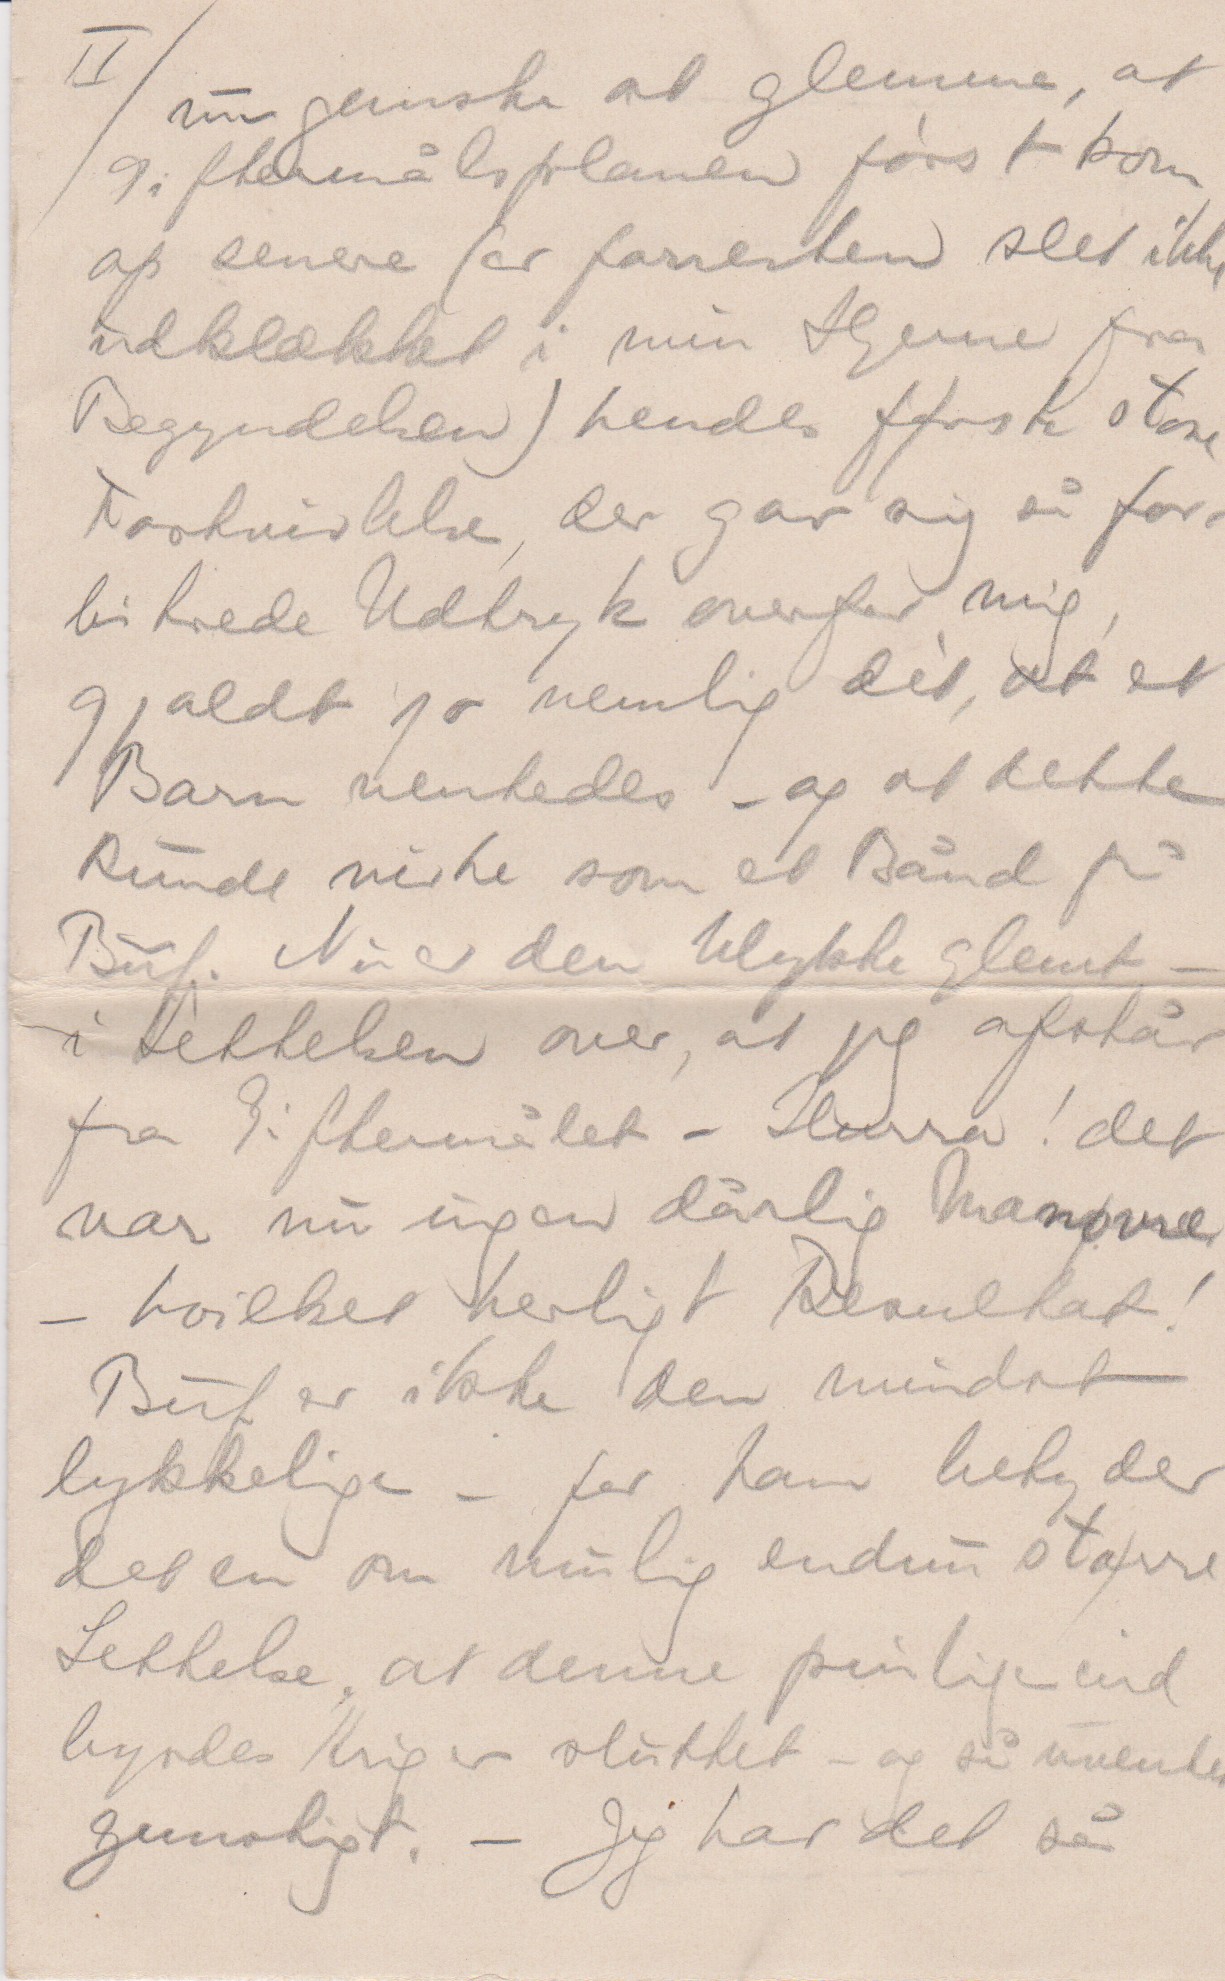 II/
nu ganske at glemme, at
Giftermålsplanen først kom
op senere (er forresten slet ikke
udklækket i min Hjerne fra
Begyndelsen) hendes første store
Fortvivlelse, der gav sig så for-
bitrede Udtryk overfor mig,
gjaldt jo nemlig dét, at et
Barn ventedes – og at dette
kunde virke som et Bånd på
Buf. Nu er den Ulykke glemt –
i Lettelsen over, at jeg afstår
fra Giftermålet – Hurra! det
var nu ingen dårlig Manøvre
– hvilket herligt Resultat!
Buf er ikke den mindst
lykkelige – for ham betyder
det en om mulig endnu større
Lettelse, at denne pinlige ind
byrdes Krig er sluttet – og så uventet
gunstigt. – Jeg har det så